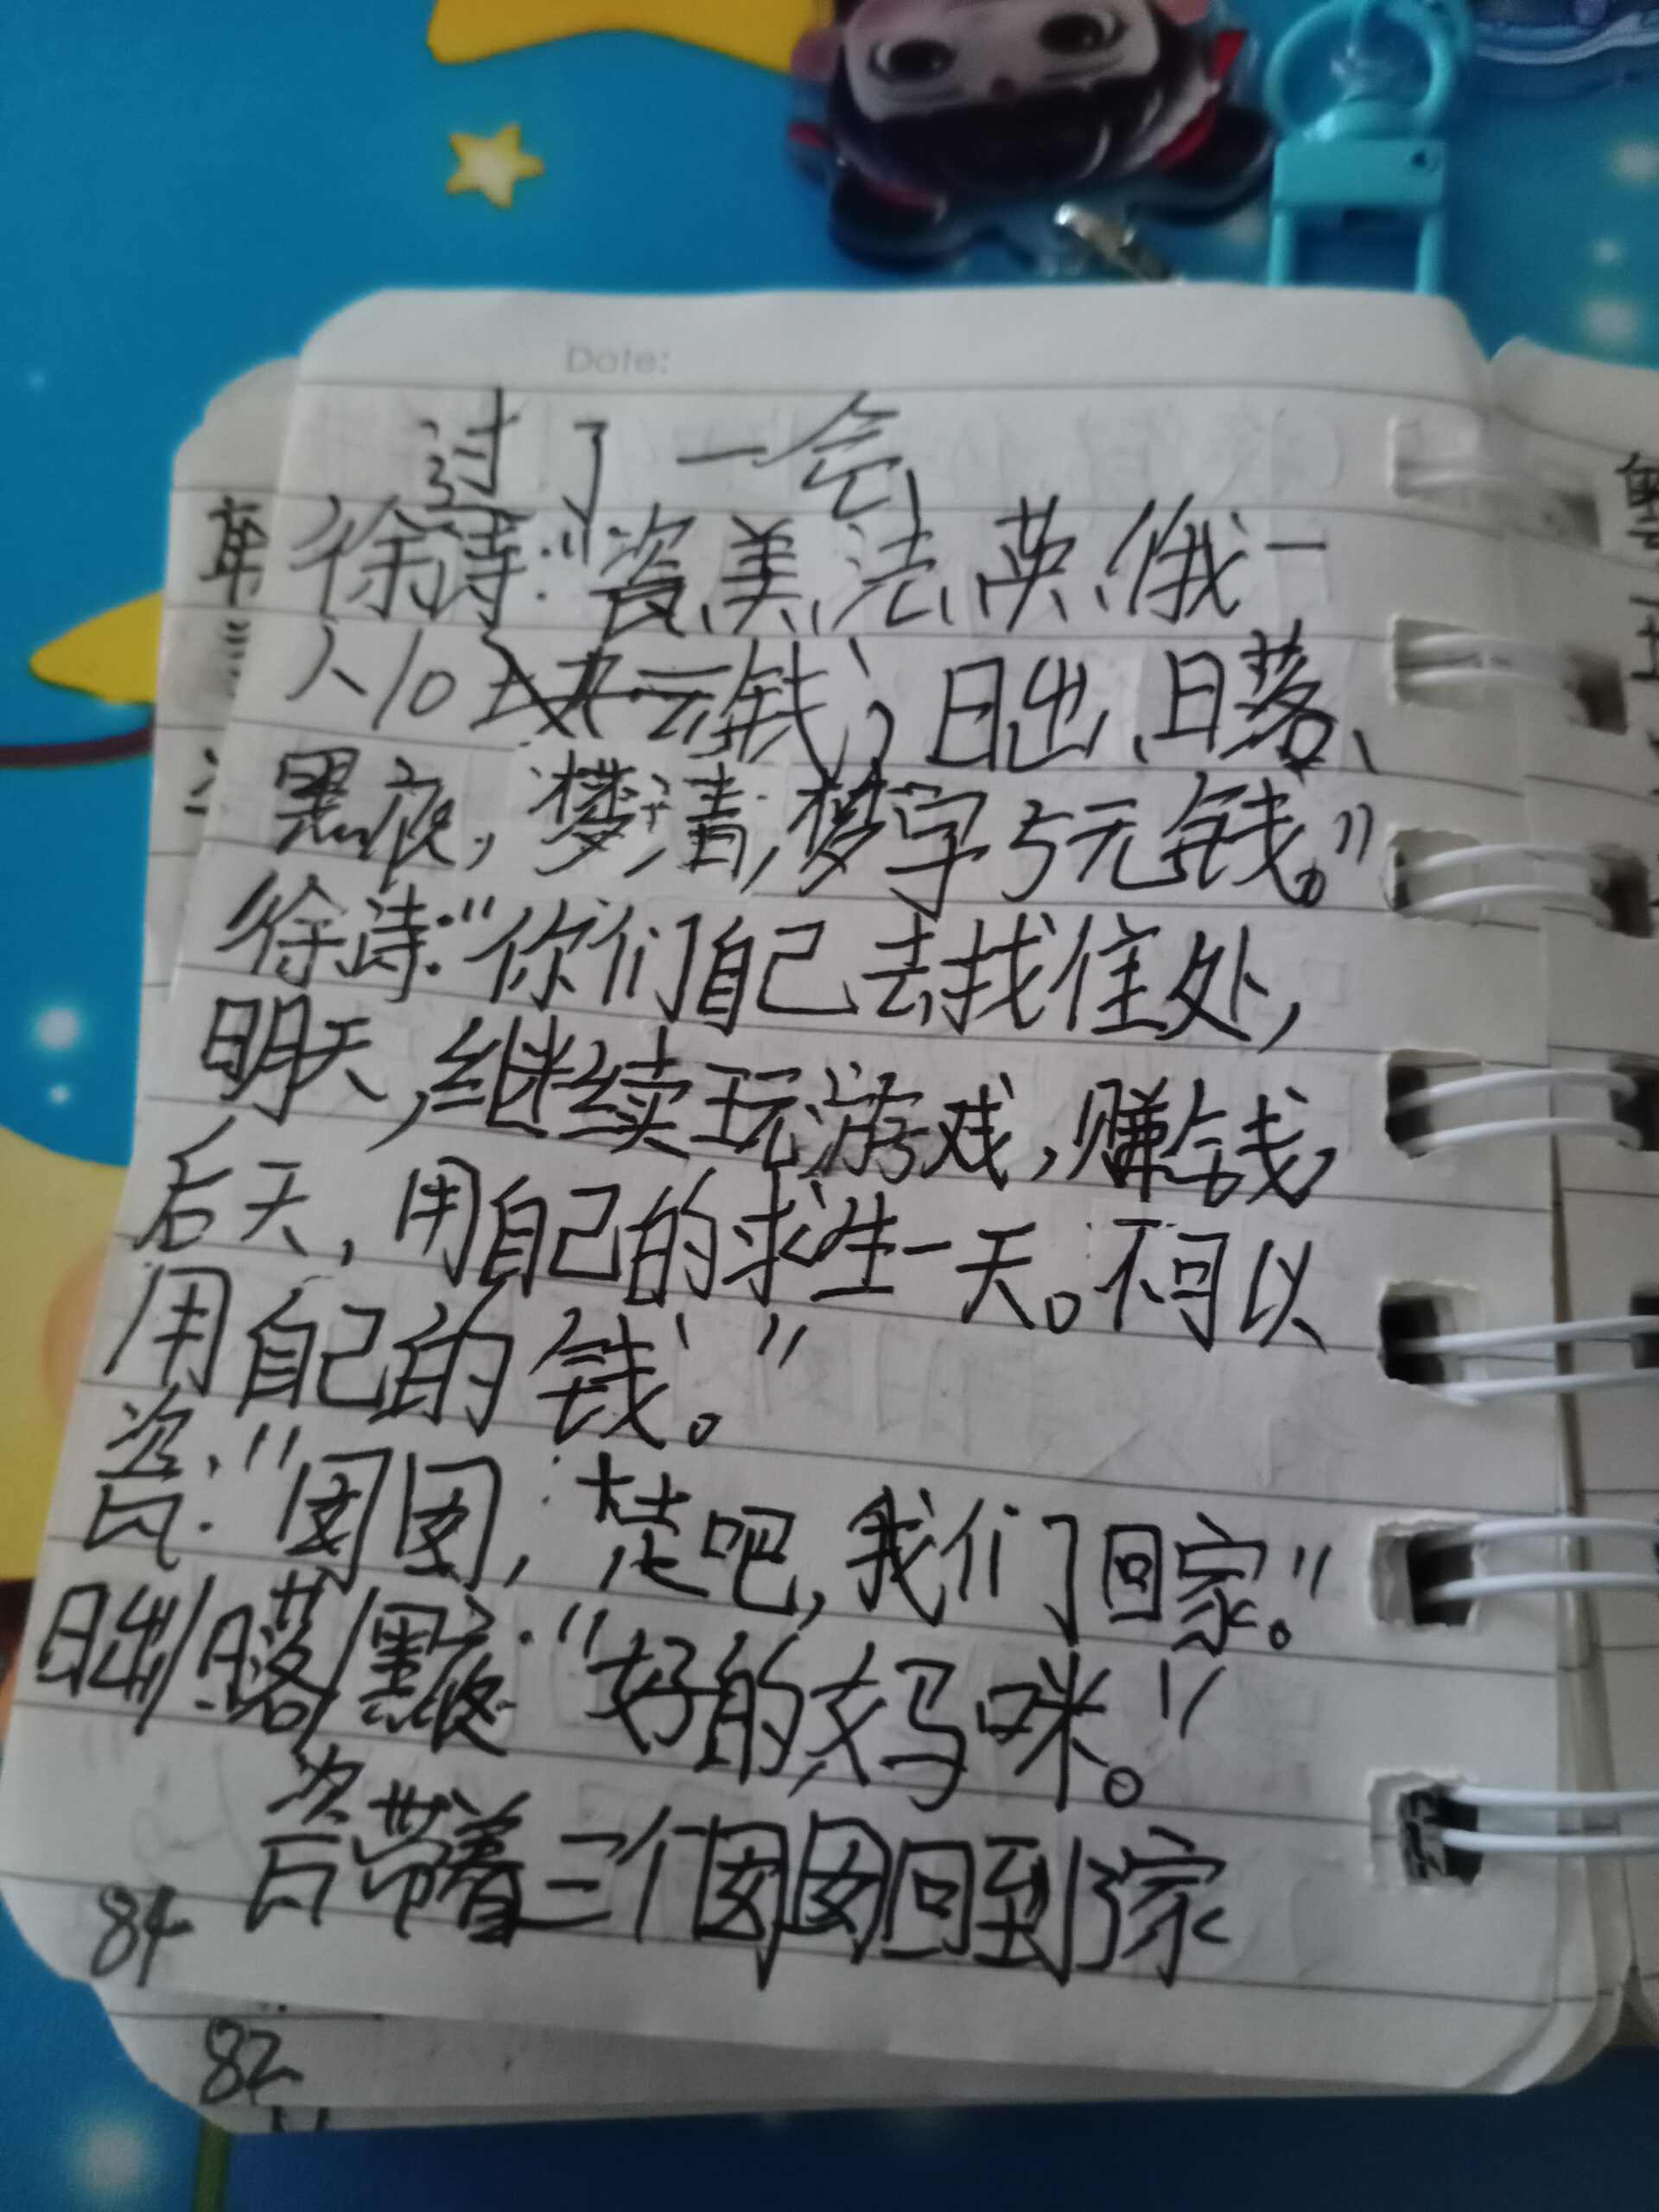 Date:
过了一会
徐诗:“瓷、美、法、英、俄一
人10元钱，日出、日落、
黑夜，梦清，梦字5元钱。”
徐诗:“你们自己去找住处，
明天，继续玩游戏，赚钱，
后天，用自己的求生一天。不可以
用自己的钱。”
瓷:“囡囡，走吧，我们回家。”
日出/日落/黑夜:“好的妈咪。”
瓷带着三个囡囡回到了家
84
82